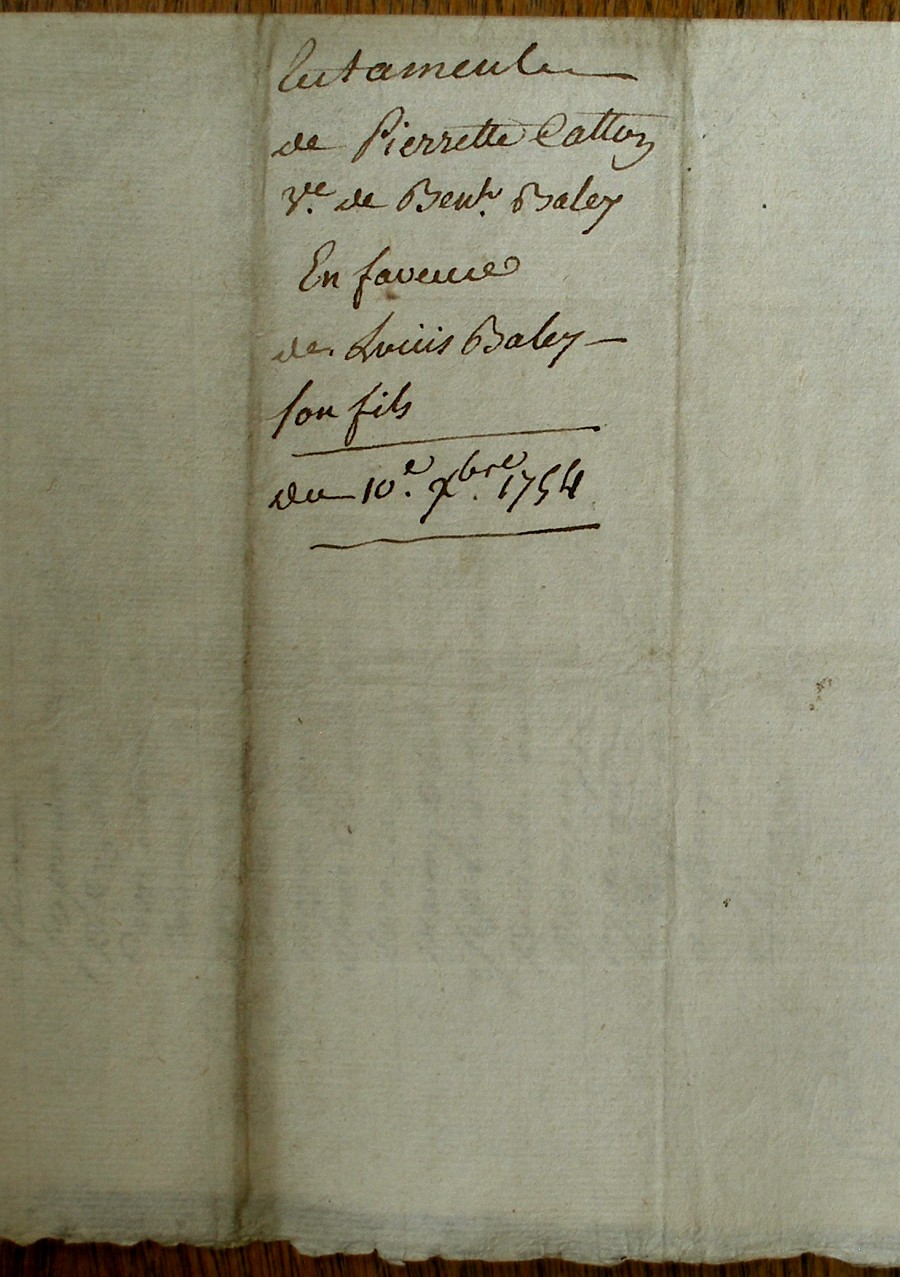 Testament
de Pierrette Catton
Ve. de Bent. Baley
En faveur
de Louis Baley
son fils
du 10e. xbre. 1754